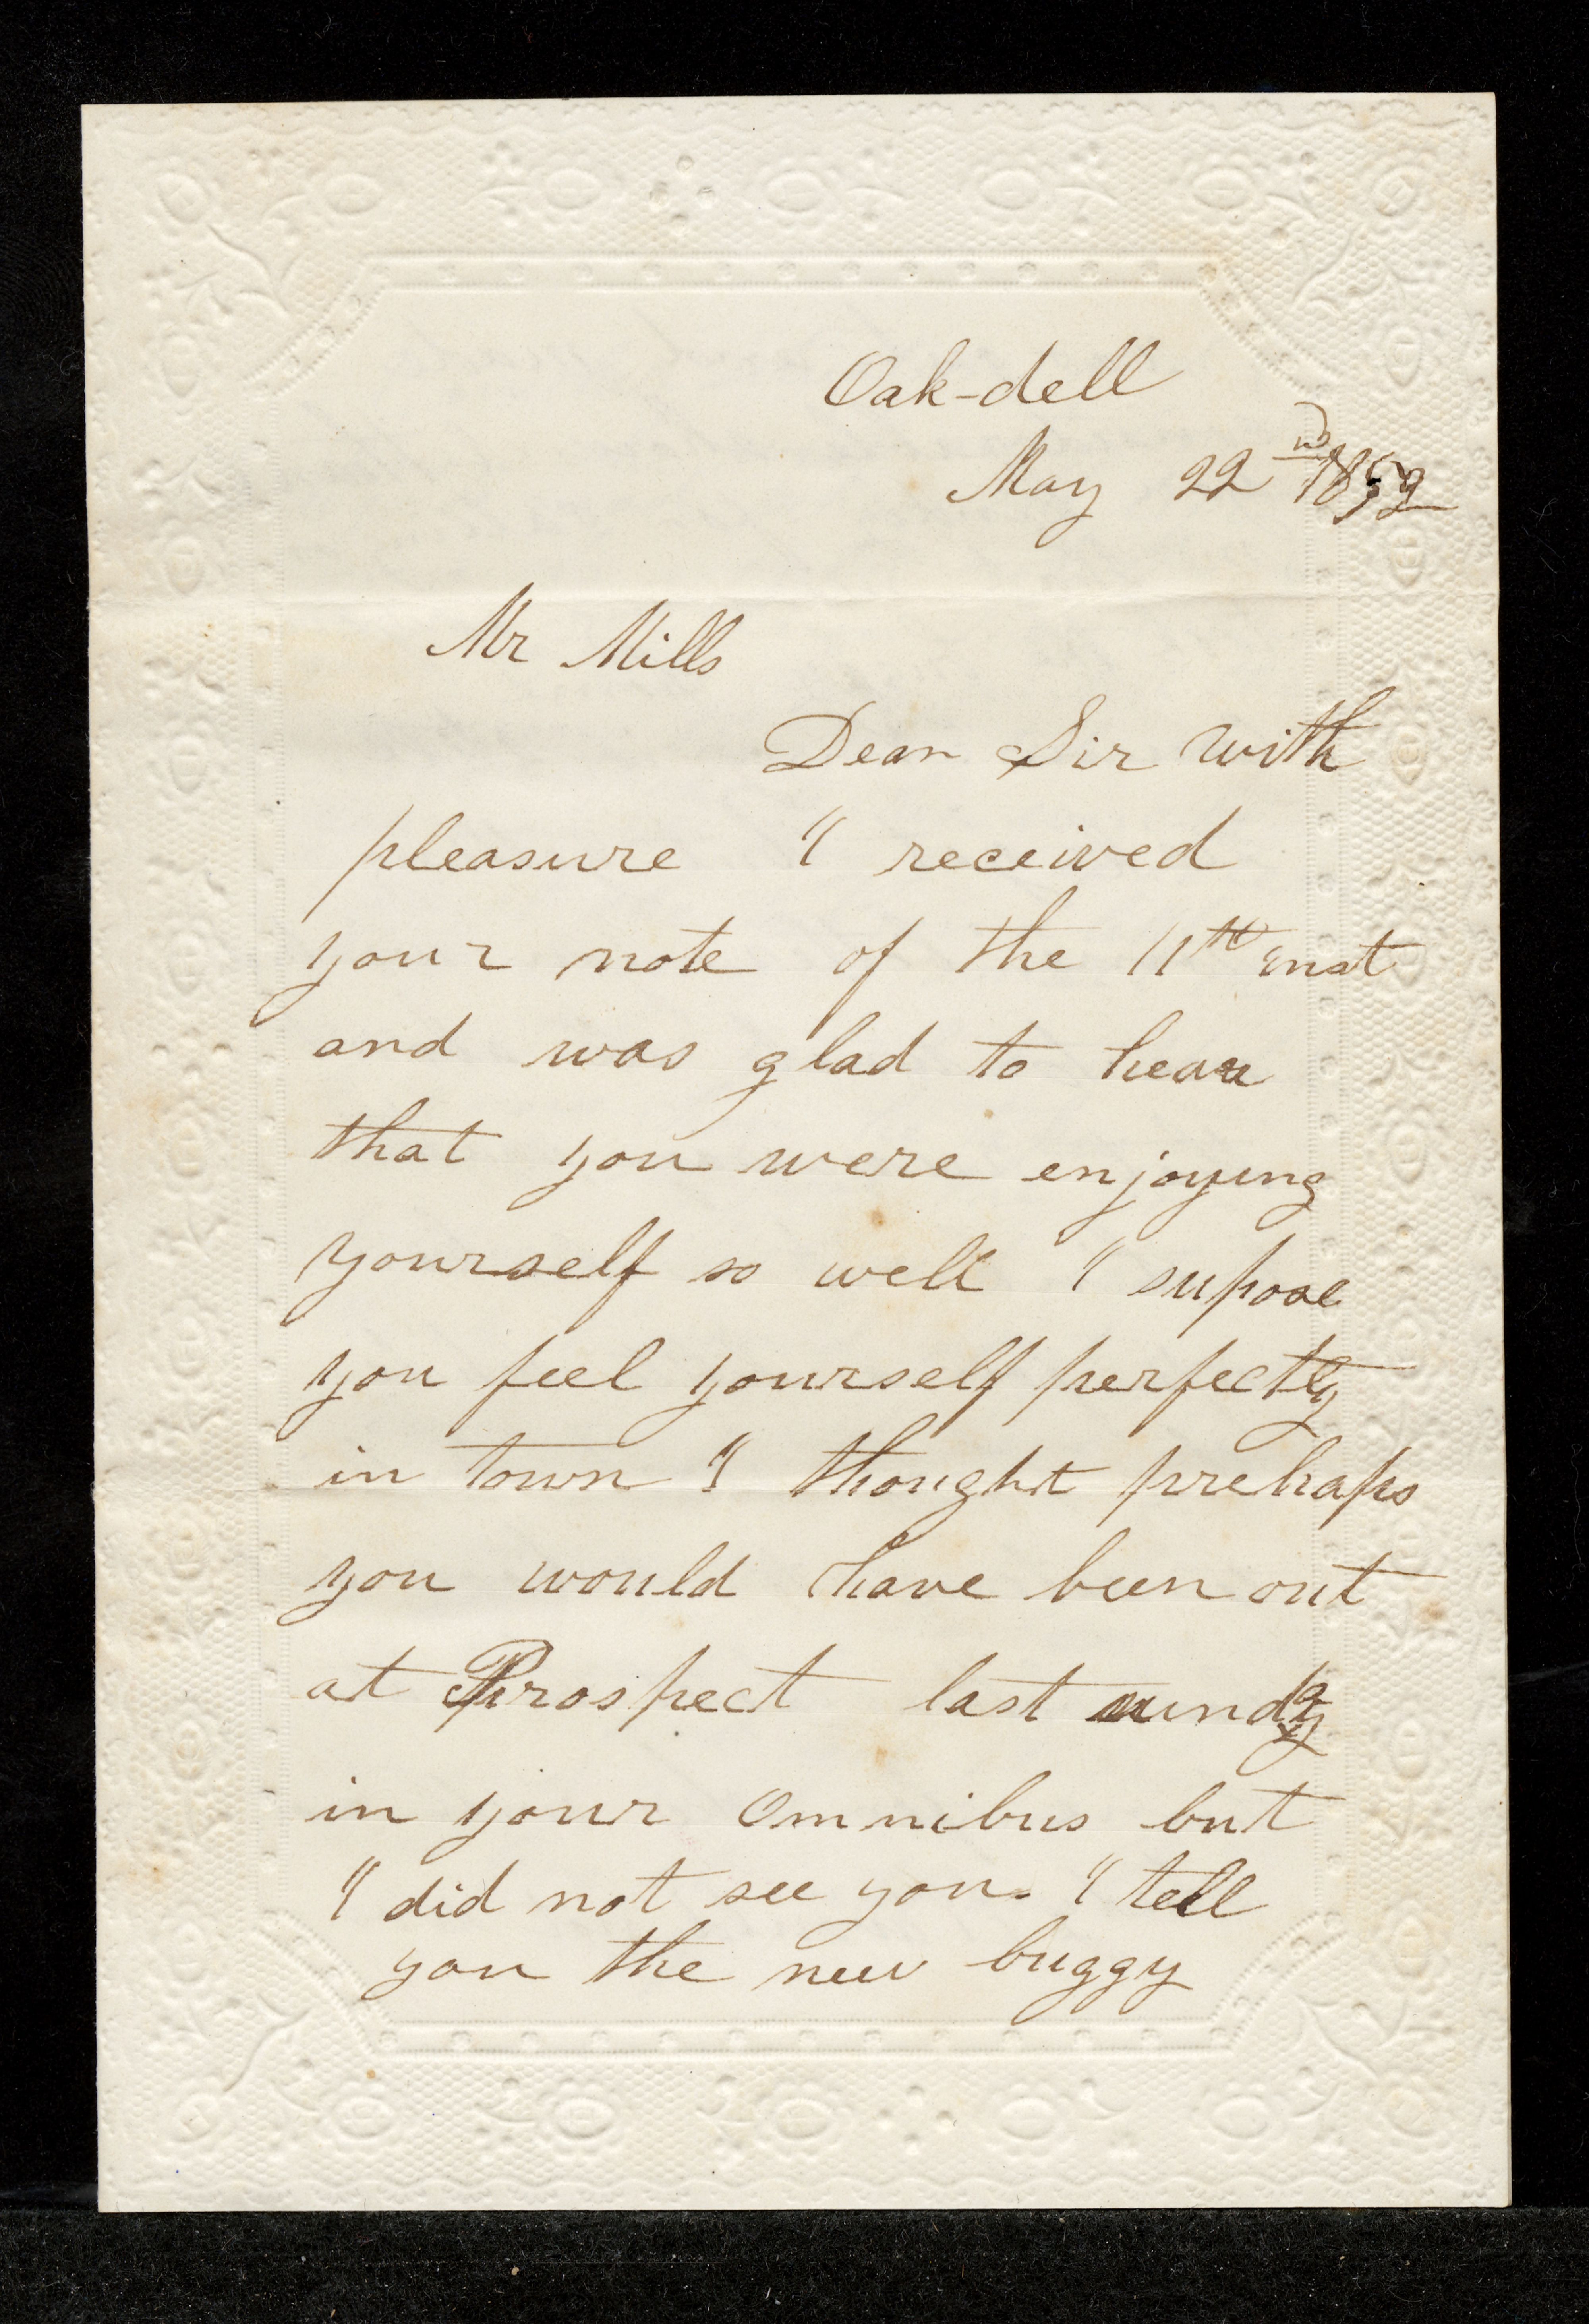 Oak-dell
May 22nd 1852
Mr Mills
Dear Sir with
pleasure I received
your note of the 11th inst
and was glad to hear
that you were enjoying
yourself so well I supose
you feel yourself perfectly
in town I thought prehaps
you would have been out
at Prospect last sunday
in your Omnibus but
I did not see you. I tell
you the new buggy